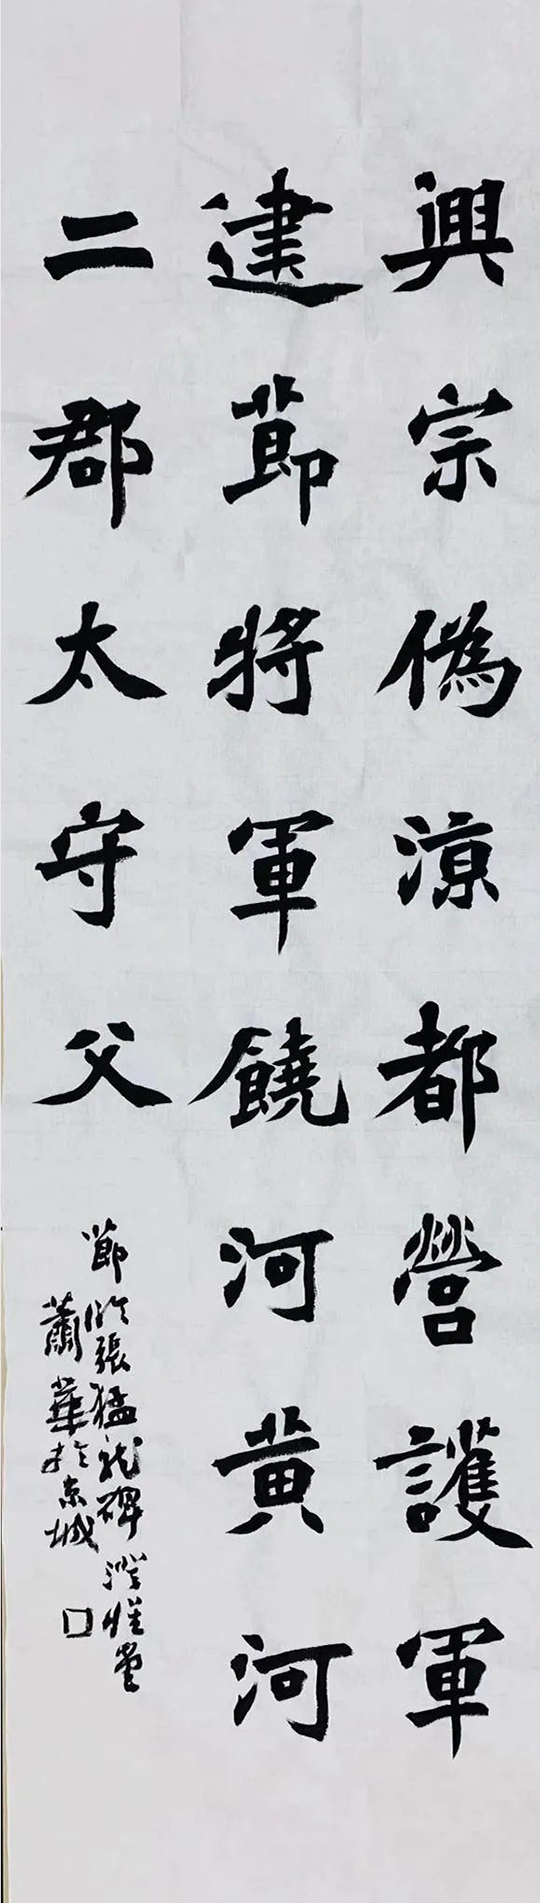 興宗偽涼都營護軍
建節將軍饒河黄河
二郡太守父
節臨張猛龍碑
蕭華於京城